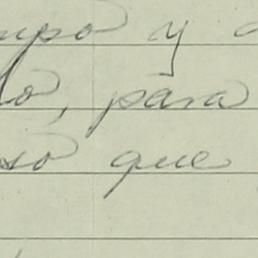 mpo y
lo, para
so que